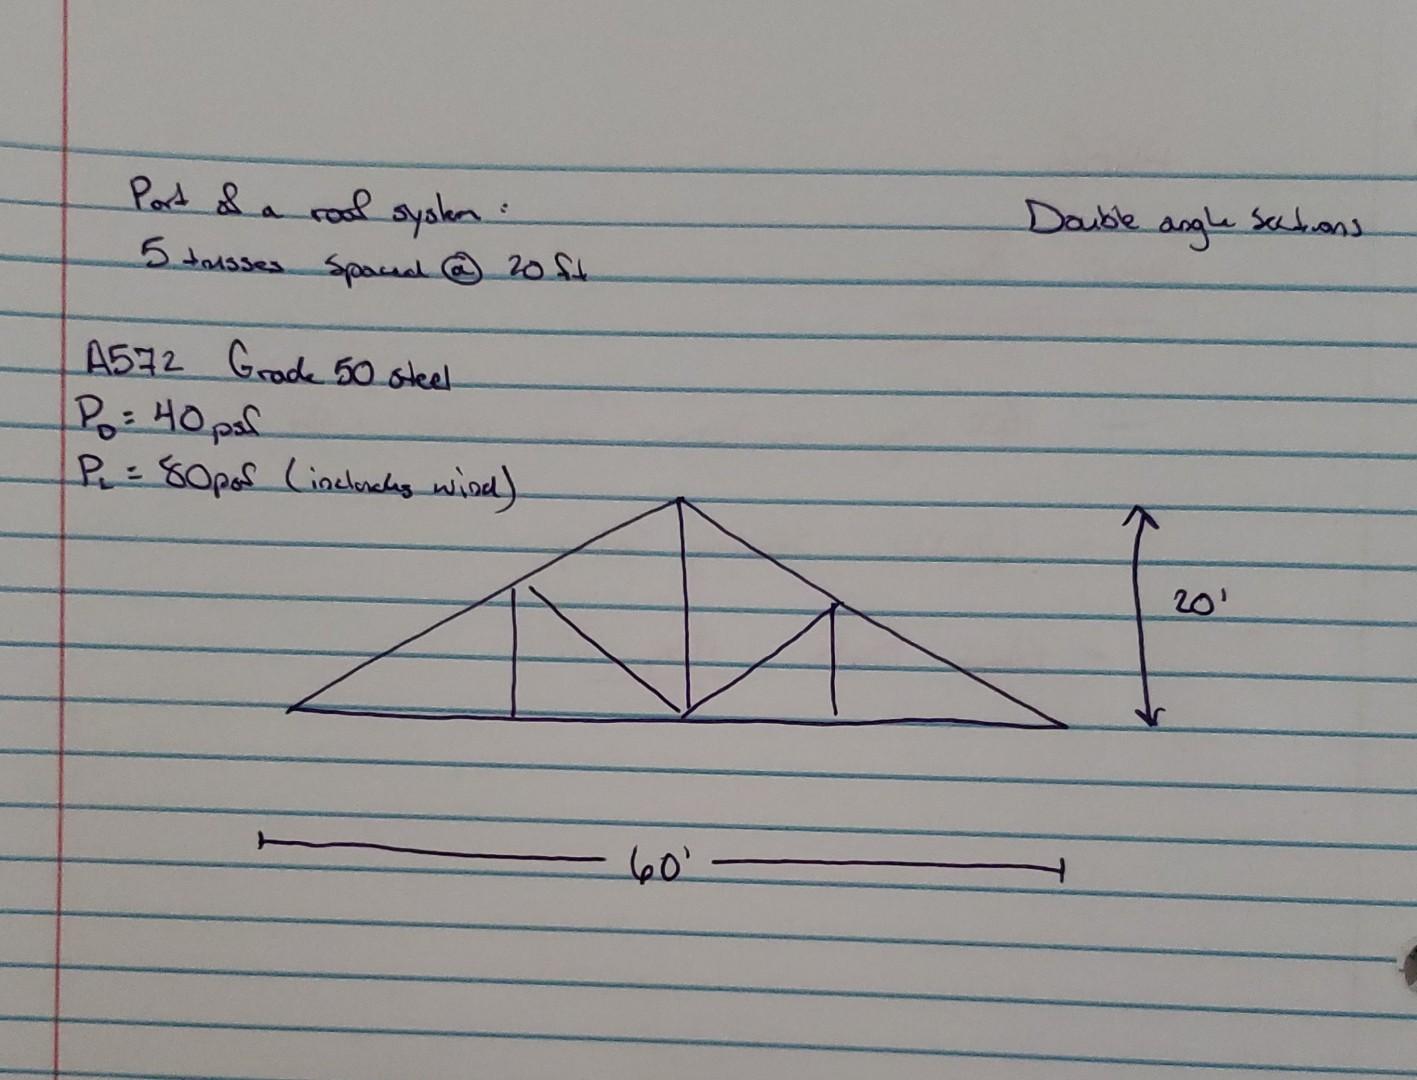 Part of a roof system:
Double angle sections
5 trusses spaced @ 20 ft
A572 Grade 50 steel
P_D = 40 psf
P_L = 80 psf (includes wind)
20'
60'